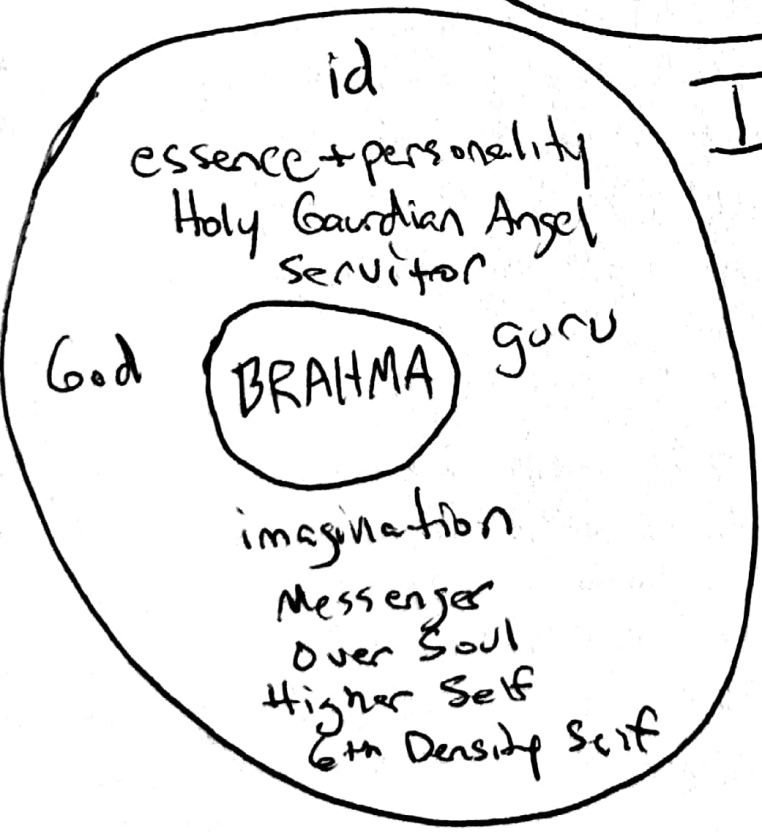 id
essence + personality
Holy Gaurdian Angel
servitor
God BRAHMA guru
imagination
Messenger
Over Soul
Higher Self
6th Density Self